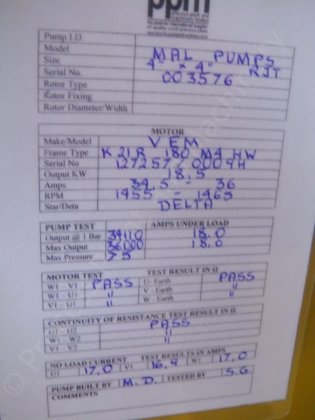 ppm
Pump I.D
Model MAL PUMPS
Size 4" - 4" RJT
Serial No. 003576
Rotor Type
Rotor Fixing
Rotor Diameter/Width
MOTOR
Make/Model VEM
Frame Type K21R 180 M4 HW
Serial No 127257/0009H
Output KW 18.5
Amps 34.5 - 36
RPM 1455 - 1465
Star/Delta DELTA
PUMP TEST AMPS UNDER LOAD
Output @ 1 Bar 18.0
Max Output 36,000 18.0
Max Pressure 7.5
MOTOR TEST TEST RESULT IN Ω
W1 - V1 PASS U - Earth PASS
W1 - U1 " V - Earth "
V1 - U1 " W - Earth "
CONTINUITY OF RESISTANCE TEST RESULT IN Ω
U1 - U2 PASS
W1 - W2 "
V1 - V2 "
NO LOAD CURRENT TEST RESULTS IN AMPS
U1 17.0 V1 16.9 W1 17.0
PUMP BUILT BY M.D. TESTED BY S.G.
COMMENTS